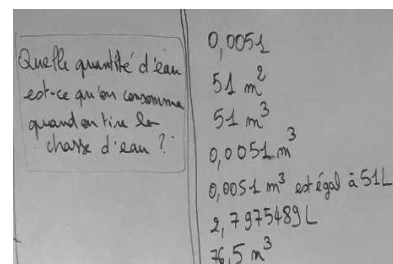 Quelle quantité d'eau
est-ce qu'on consomme
quand on tire la
chasse d'eau ?
0,0051
51 m²
51 m³
0,0051 m³
0,0051 m³ est égal à 51L
2,7975489 L
76,5 m³